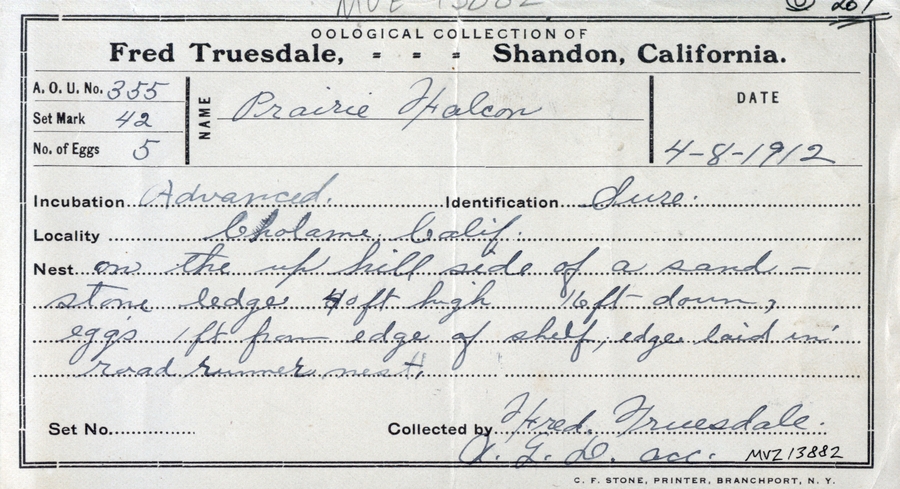 MVZ 13882
OOLOGICAL COLLECTION OF
Fred Truesdale, = = = Shandon, California.
A. O. U. No. 355
Set Mark 42
No. of Eggs 5
NAME
Prairie Falcon
DATE
4-8-1912
Incubation Advanced. Identification Sure.
Locality Cholame. Calif.
Nest on the up hill side of a sand -
stone ledge 40ft high 16ft down,
eggs 1ft from edge of shelf, edge laid in
road runner nest.
Set No. Collected by Fred. Truesdale.
acc. MVZ 13882
C. F. STONE, PRINTER, BRANCHPORT, N. Y.